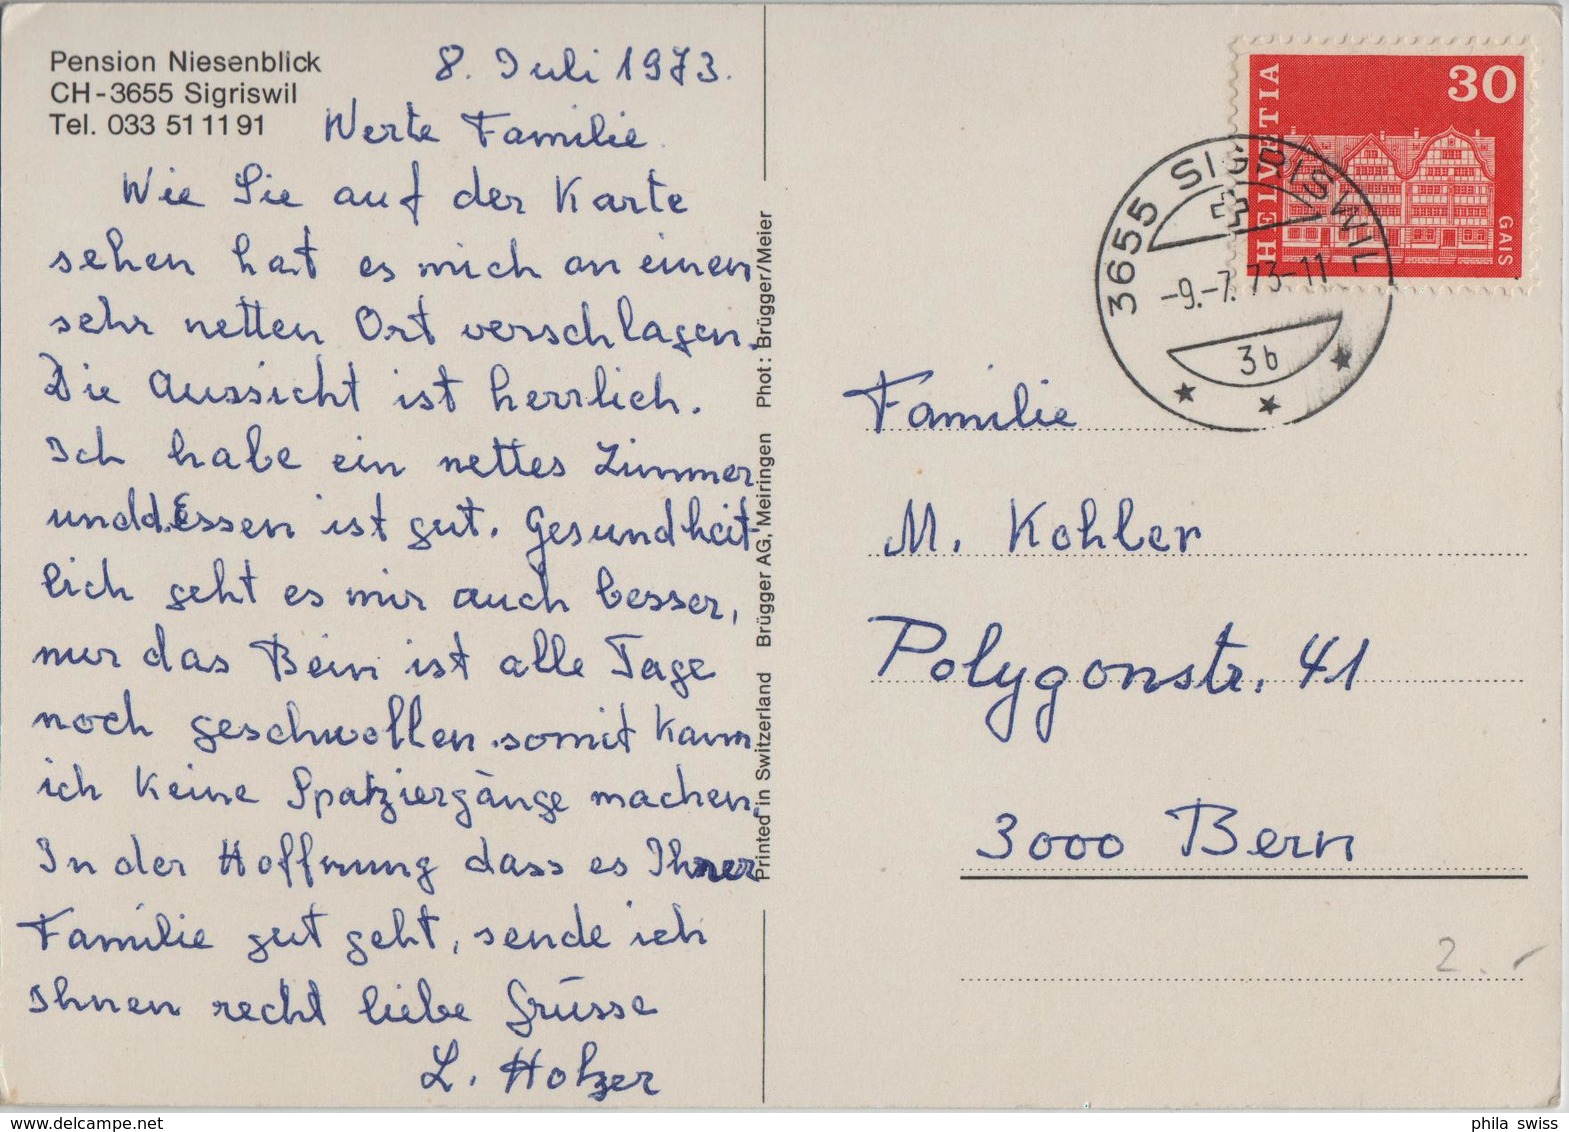 Pension Niesenblick
CH-3655 Sigriswil
Tel. 033 51 11 91
8. Juli 1973.
Werte Familie.
Wie Sie auf der Karte
sehen hat es mich an einen
sehr netten Ort verschlagen.
Die Aussicht ist herrlich.
Ich habe ein nettes Zimmer
und d. Essen ist gut. Gesundheit-
lich geht es mir auch besser,
nur das Bein ist alle Tage
noch geschwollen. somit kann
ich keine Spatziergänge machen.
In der Hoffnung dass es Ihner
Familie gut geht, sende ich
Ihnen recht liebe Grüsse
L. Holzer
Printed in Switzerland Brügger AG, Meiringen Phot: Brügger/Meier
HELVETIA
30
GAIS
3655 SIGRISWIL
-9.-7.73-11
3b
Familie
M. Kohler
Polygonstr. 41
3000 Bern
2.-
phila swiss